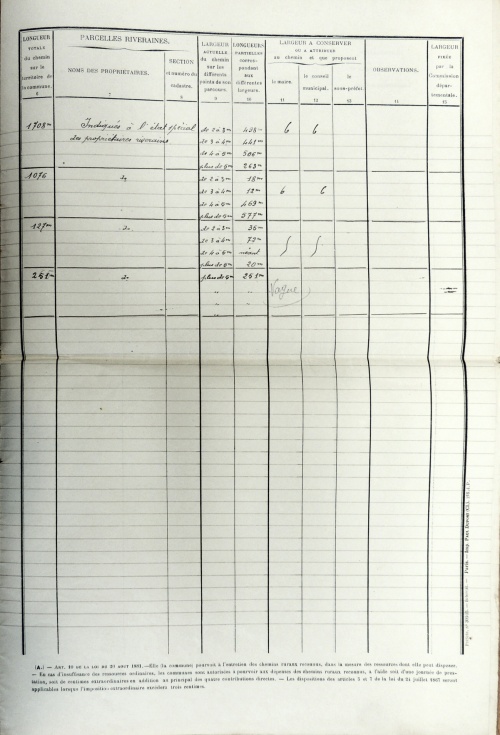 LONGUEUR TOTALE du chemin sur le territoire de la commune. 6
PARCELLES RIVERAINES.
NOMS DES PROPRIÉTAIRES. 7
SECTION et numéro du cadastre. 8
LARGEUR ACTUELLE du chemin sur les différents points de son parcours. 9
LONGUEURS PARTIELLES correspondant aux différentes largeurs. 10
LARGEUR A CONSERVER OU A ATTRIBUER au chemin et que proposent
le maire. 11
le conseil municipal. 12
le sous-préfet. 13
OBSERVATIONS. 14
LARGEUR fixée par la Commission départementale. 15
1708m Indiqués à l'état spécial de 2 à 3m 498m 6 6
des propriétaires riverains de 3 à 4m 441m
de 4 à 5m 506m
plus de 5m 263m
1076 do de 2 à 3m 18m
de 3 à 4m 12m 6 6
de 4 à 5m 469m
plus de 5m 577m
127m do de 2 à 3m 35m
de 3 à 4m 72m
de 4 à 5m néant
plus de 5m 20m
251m do plus de 5m 251m
Voyne
(A.) — ART. 10 DE LA LOI DU 20 AOUT 1881. — Elle (la commune) pourvoit à l'entretien des chemins ruraux reconnus, dans la mesure des ressources dont elle peut disposer.
— En cas d'insuffisance des ressources ordinaires, les communes sont autorisées à pourvoir aux dépenses des chemins ruraux reconnus, à l'aide soit d'une journée de prestation, soit de centimes extraordinaires en addition au principal des quatre contributions directes. — Les dispositions des articles 5 et 7 de la loi du 24 juillet 1867 seront
applicables lorsque l'imposition extraordinaire excédera trois centimes.